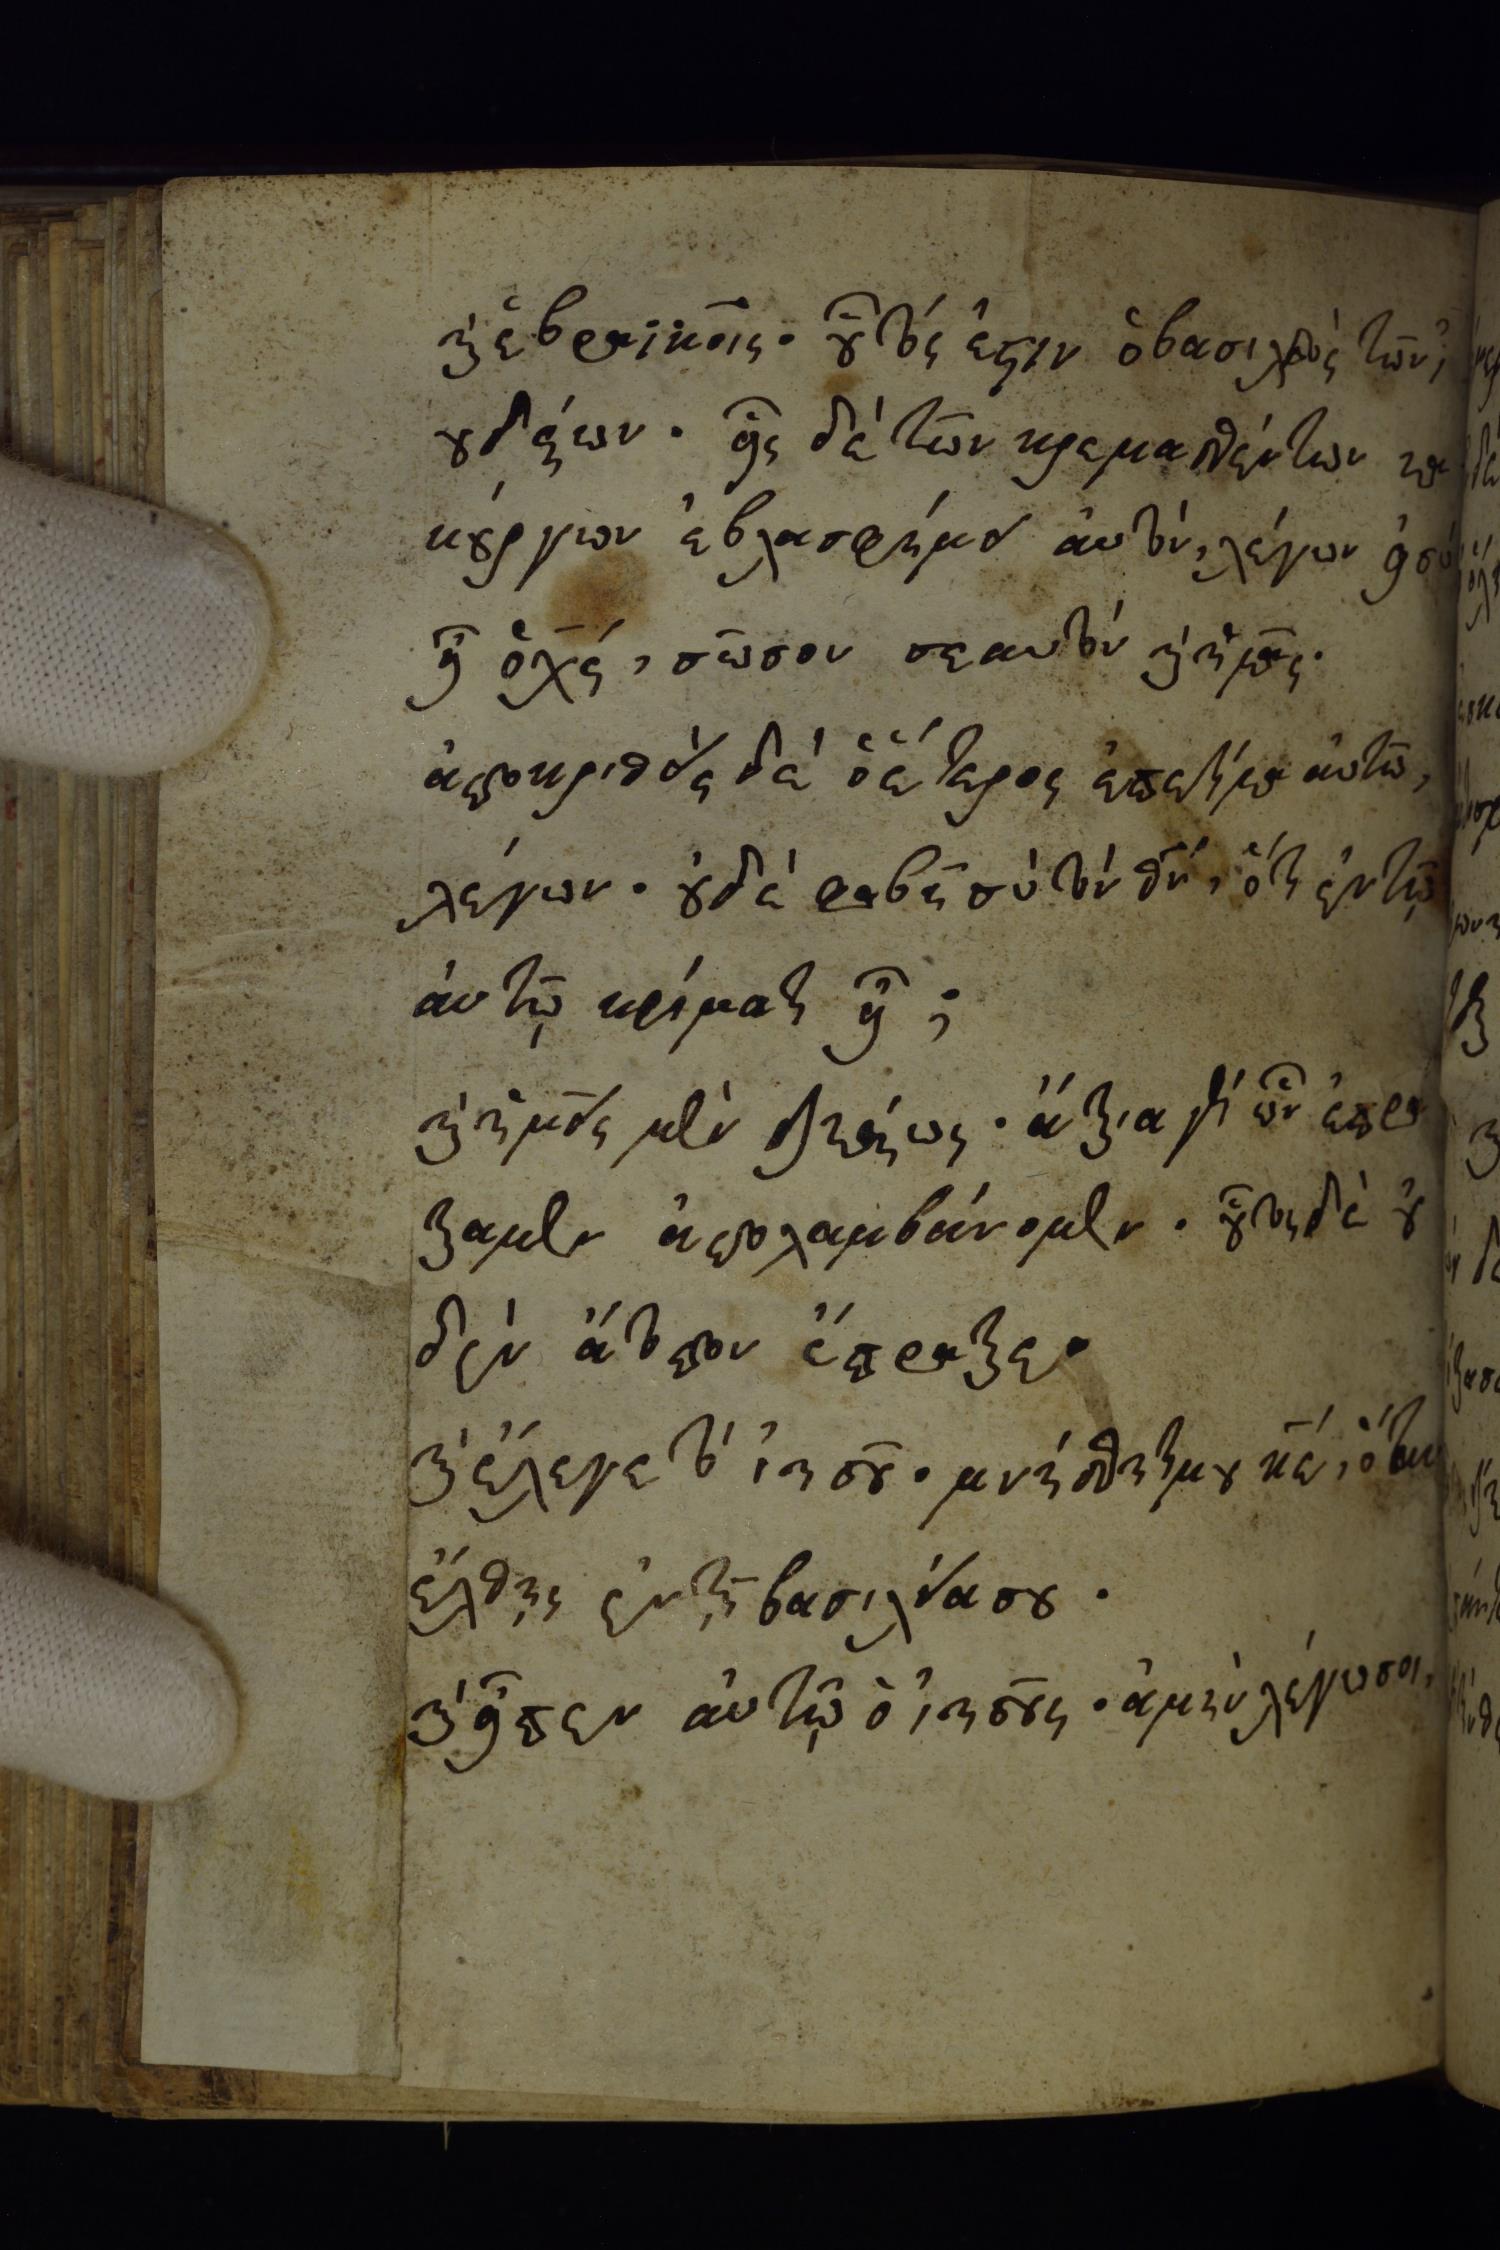 κ ἑβραϊκοῖς· οὗτός ἐστιν ὁ βασιλεὺς τῶν ἰ
ουδαίων· εἷς δὲ τῶν κρεμασθέντων κα
κούργων ἐβλασφήμει αὐτόν, λέγων εἰ σύ
εἶ ὁ χς, σῶσον σεαυτόν κ ἡμᾶς·
ἀποκριθείς δέ ὁ ἕτερος ἐπετίμα αὐτῶ,
λέγων· οὐδέ φοβῆ σύ τόν θν, ὅτι ἐν τῶ
αὐτῶ κρίματι εἶ;
κ ἡμεῖς μέν δικαίως· ἄξια γάρ ὧν ἐπρά
ξαμεν ἀπολαμβάνομεν· οὗτος δέ οὐ
δέν ἄτοπον ἔπραξε·
κ ἔλεγε τῶ ἰησοῦ· μνήσθητί μου κε, ὅταν
ἔλθῃς ἐν τῇ βασιλείᾳ σου·
κ εἶπεν αὐτῷ ὁ ἰησοῦς· ἀμὴν λέγω σοι,